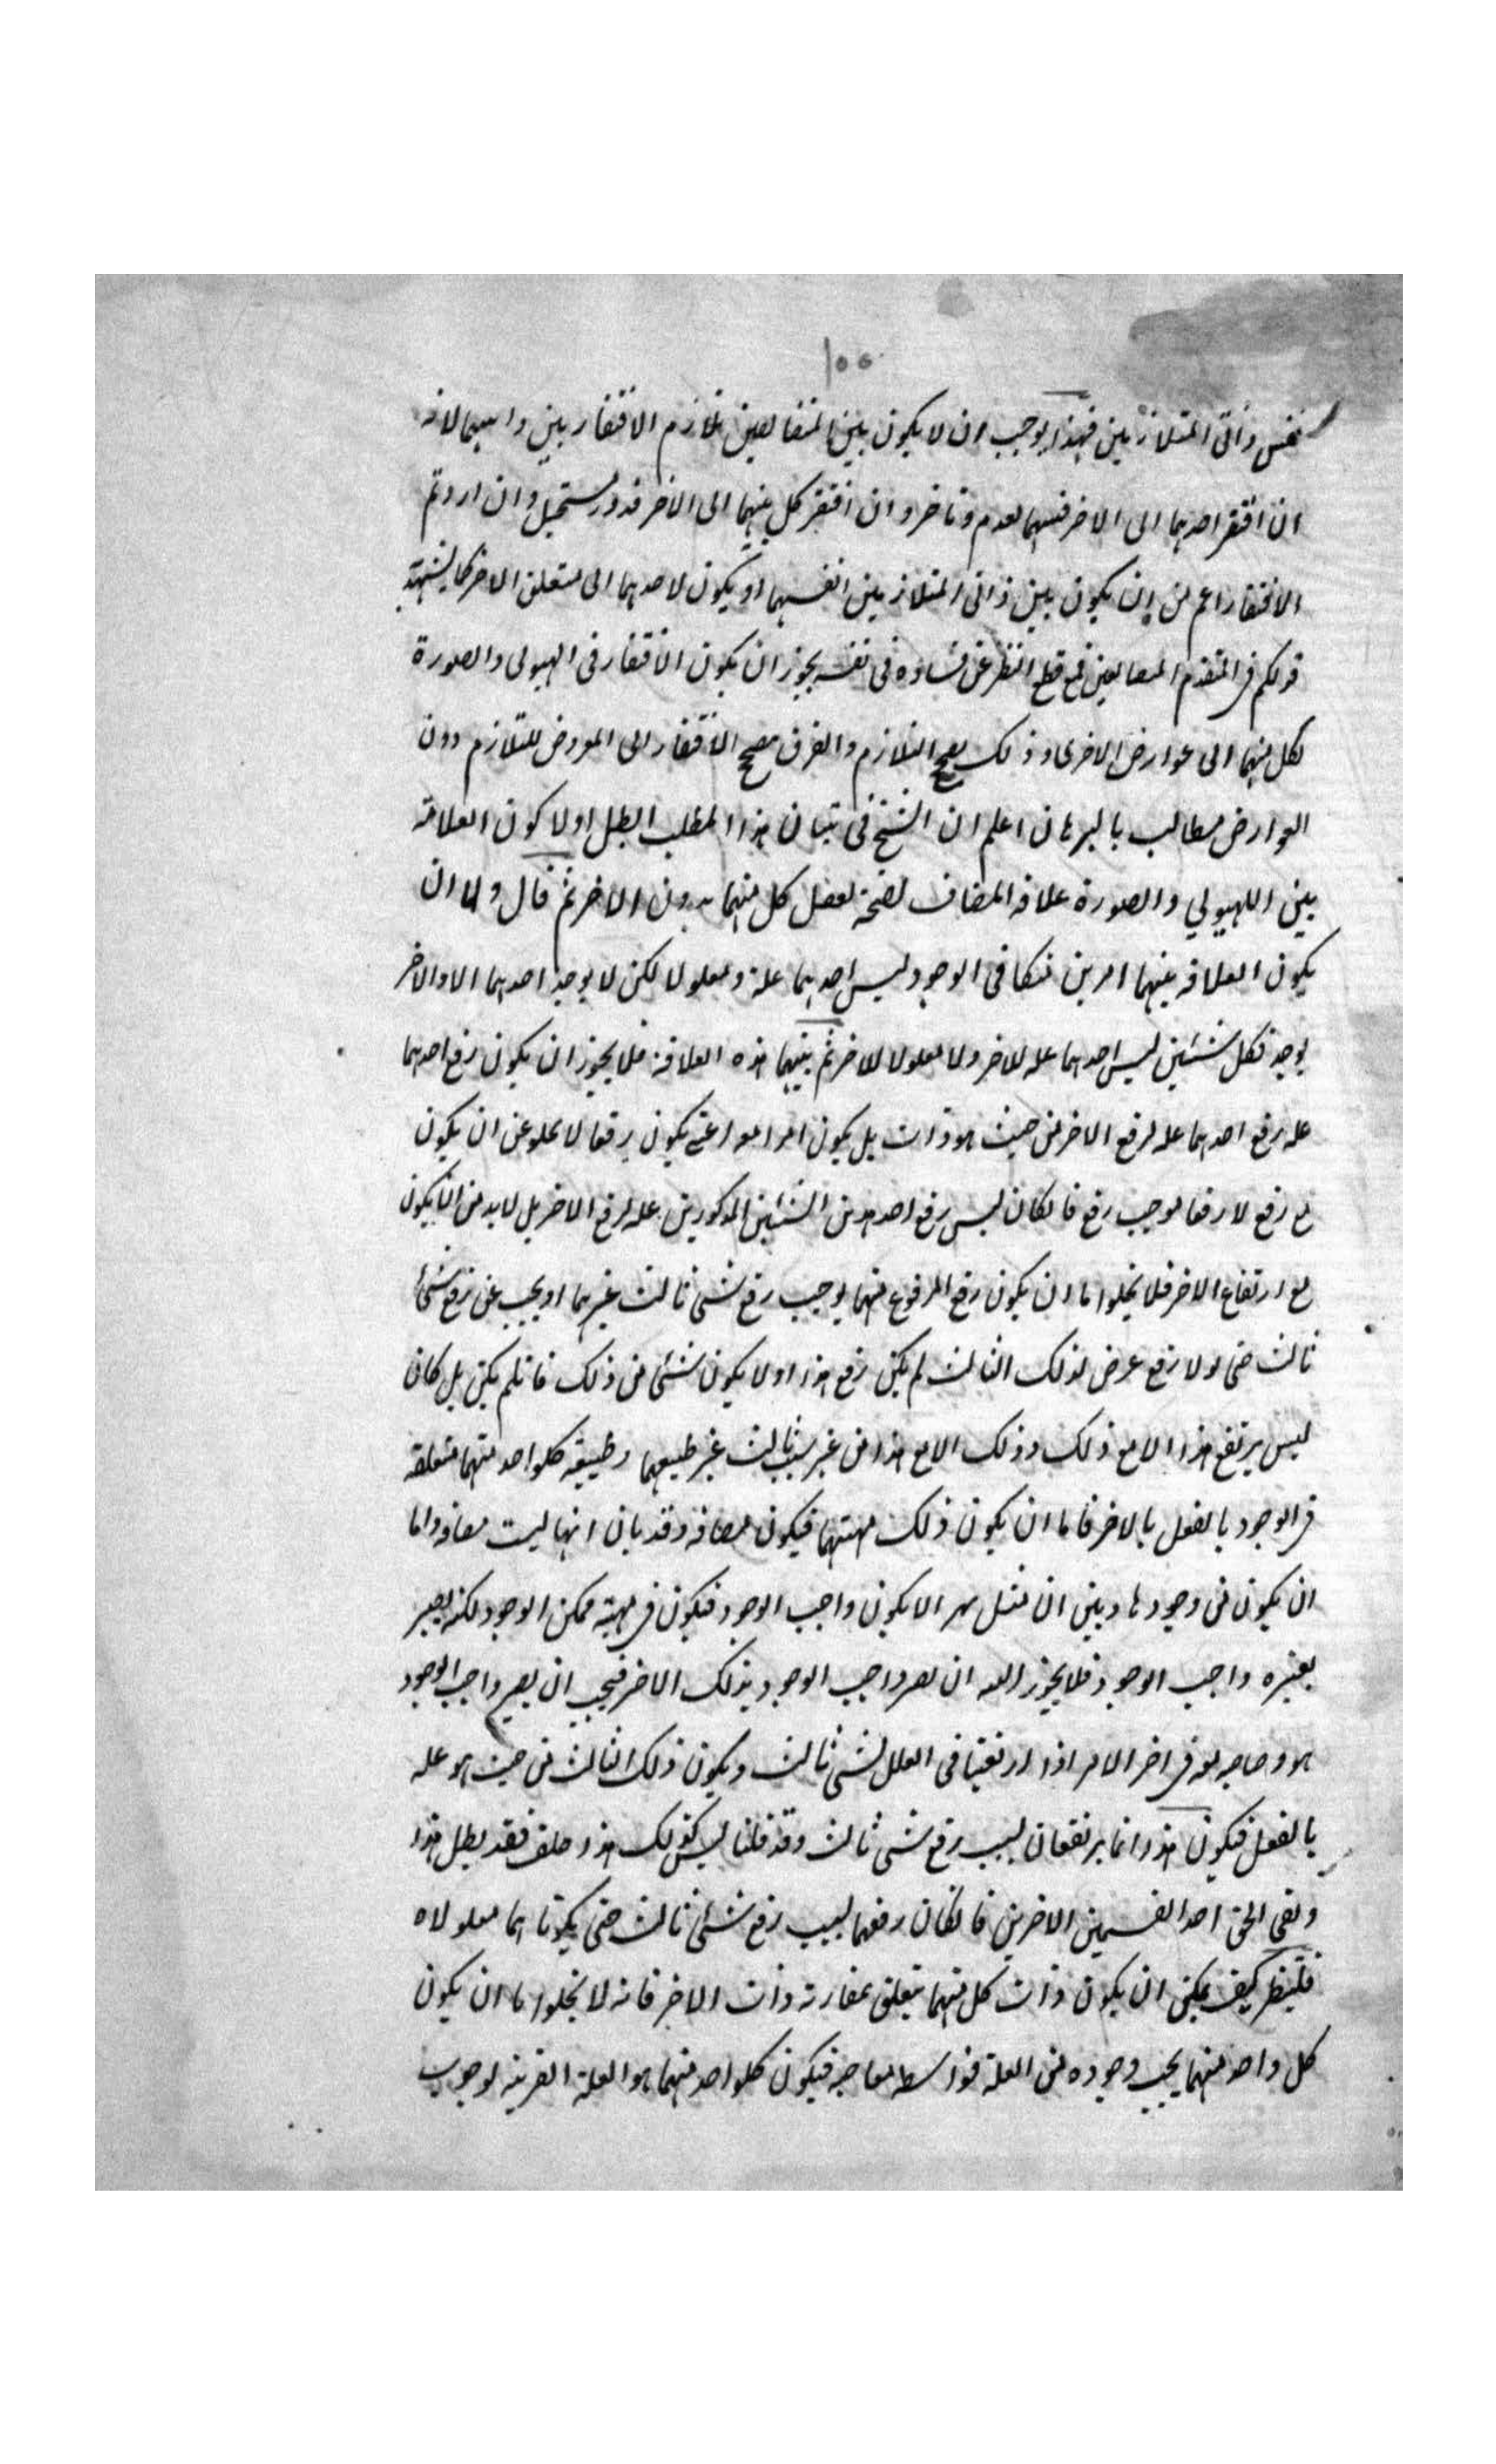 ١٥٥
نفس ذاتى المتلازمين فهذا يوجب ان لا يكون بين المتضايفين تلازم الافتقار بين ذاتيهما لانه
ان افتقر احدهما الى الاخر فبينهما تقدم وتاخر وان افتقر كل منهما الى الاخر فدور مستحيل وان اردتم
الافتقار اعم من ان يكون بين ذاتى المتلازمين انفسهما او يكون لاحدهما الى متعلق الاخر كما
قولكم فى المتضايفين فمع قطع النظر عن فساده فى نفسه يجوز ان يكون الافتقار فى الهيولى والصورة
لكل منهما الى عوارض الاخرى وذلك يصحح التلازم والفرق مصحح الافتقار الى المعروض للتلازم دون
العوارض مطالب بالبرهان اعلم ان الشيخ فى تبيان هذا المطلب ابطل اولا كون العلاقة
بين الهيولي والصورة علاقه المضاف لصحة تعقل كل منهما بدون الاخر ثم قال ولا ان
يكون العلاقه بينهما امرين متكافى الوجود ليس احدهما علة ومعلولا لكن لا يوجد احدهما الا والاخر
يوجد فكل شيئين ليس احدهما عله للاخر ولا معلولا للاخر ثم بينهما هذه العلاقة فلا يجوز ان يكون رفع احدهما
عله رفع احدهما عله لرفع الاخر من حيث هو ذات بل يكون امرا معه اعنى يكون رفعا لا يخلو عن ان يكون
مع رفع لا رفعا يوجب رفع فا لكان ليس رفع احد هذين الشيئين المذكورين عله لرفع الاخر بل لابد من ان يكون
مع ارتفاع الاخر فلا يخلوا ما ان يكون رفع المرفوع منهما يوجب رفع شئ ثالث غيرهما او يجب عن رفع شئ
ثالث حتى لولا رفع عرض لذلك الثالث لم يكن رفع هذا او لا يكون شئ من ذلك فانلم يكن بل كان
ليس يرتفع هذا الا مع ذلك وذلك الا مع هذا من غير سبب ثالث غير طبيعتهما وطبيعة كلواحد منهما متعلقه
فى الوجود بالفعل بالاخر فاما ان يكون ذلك لمهيتهما فيكون مضافه وقد بان انها ليست مضافه واما
ان يكون فى وجودها وبين ان مثل هذا لا يكون واجب الوجود فيكون فى مهيته ممكن الوجود لكنه يصير
بغيره واجب الوجود فلا يجوز البته ان يصير واجب الوجود بذلك الاخر فيجب ان يصير واجب الوجود
هو وصاحبه معه فى اخر الامر اذا ارتقينا فى العلل لشئ ثالث ويكون ذلك الثالث من حيث هو عله
بالفعل فيكون هذا انما يرتفعان بسبب رفع شئ ثالث وقد قلنا ليس كذلك هذا خلف فقد بطل هذا
وبقى الحق احد القسمين الاخرين فا لكان رفعهما بسبب رفع شئ ثالث حتى يكونا هما معلولاه
فلينظر كيف يمكن ان يكون ذات كل منهما يتعلق بمقارنة ذات الاخر فانه لا يخلوا ما ان يكون
كل واحد منهما يجب وجوده من العلة بواسطه صاحبه فيكون كلواحد منهما هو العلة القريبه لوجوب